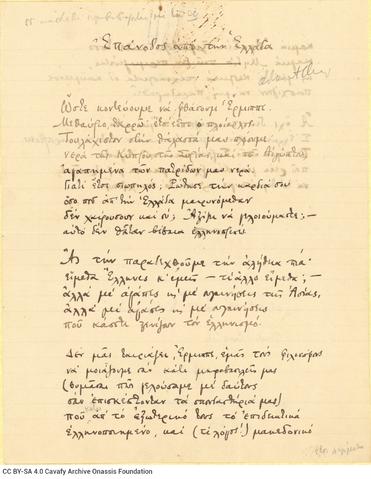 Επάνοδος από την Ελλάδα
Ώστε κοντεύουμε να φθάσουμ' Έρμιππε.
Μεθαύριο, θαρρώ· έτσι είπε ο πλοίαρχος.
Τουλάχιστον στην θάλασσά μας πλέουμε·
νερά της Κύπρου, της Συρίας, και της Αιγύπτου,
αγαπημένα των πατρίδων μας νερά.
Γιατί έτσι σιωπηλός; Ρώτησε την καρδιά σου
όσο που απ' την Ελλάδα μακρυνόμεθαν
δεν χαίροσουν και συ; Αξίζει να γελιούμαστε; —
αυτό δεν θάταν βέβαια ελληνοπρεπές.
Ας την παραδεχθούμε την αλήθεια πια·
είμεθα Έλληνες κ' εμείς — τι άλλο είμεθα; —
αλλά με αγάπες και με συγκινήσεις της Ασίας,
αλλά με αγάπες και με συγκινήσεις
που κάποτε ξενίζουν τον Ελληνισμό.
Δεν μας ταιριάζει, Έρμιππε, εμάς τους φιλοσόφους
να μοιάζουμε σαν κάτι μικροβασιλείς μας
(θυμάσαι πώς γελούσαμε με δαύτους
σαν επισκέπτονταν τα σπουδαστήριά μας)
που κάτω απ' το εξωτερικό τους το επιδεικτικά
ελληνοποιημένο, και (τι λόγος!) μακεδονικό
CC BY-SA 4.0 Cavafy Archive Onassis Foundation